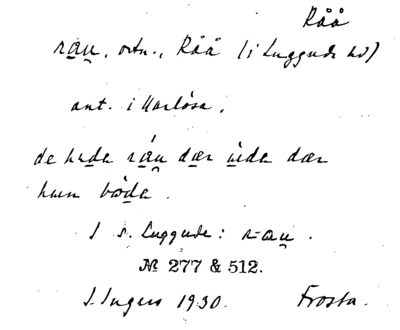 Råå
rau̯, ortn., Råå (i Luggude hd)
ant. i Harlösa.
de heda ráu̯ dær ùda dær
hun boda.
I s. Luggude: rau̯.
№ 277 & 512.
I. Ingers 1930. Frosta.